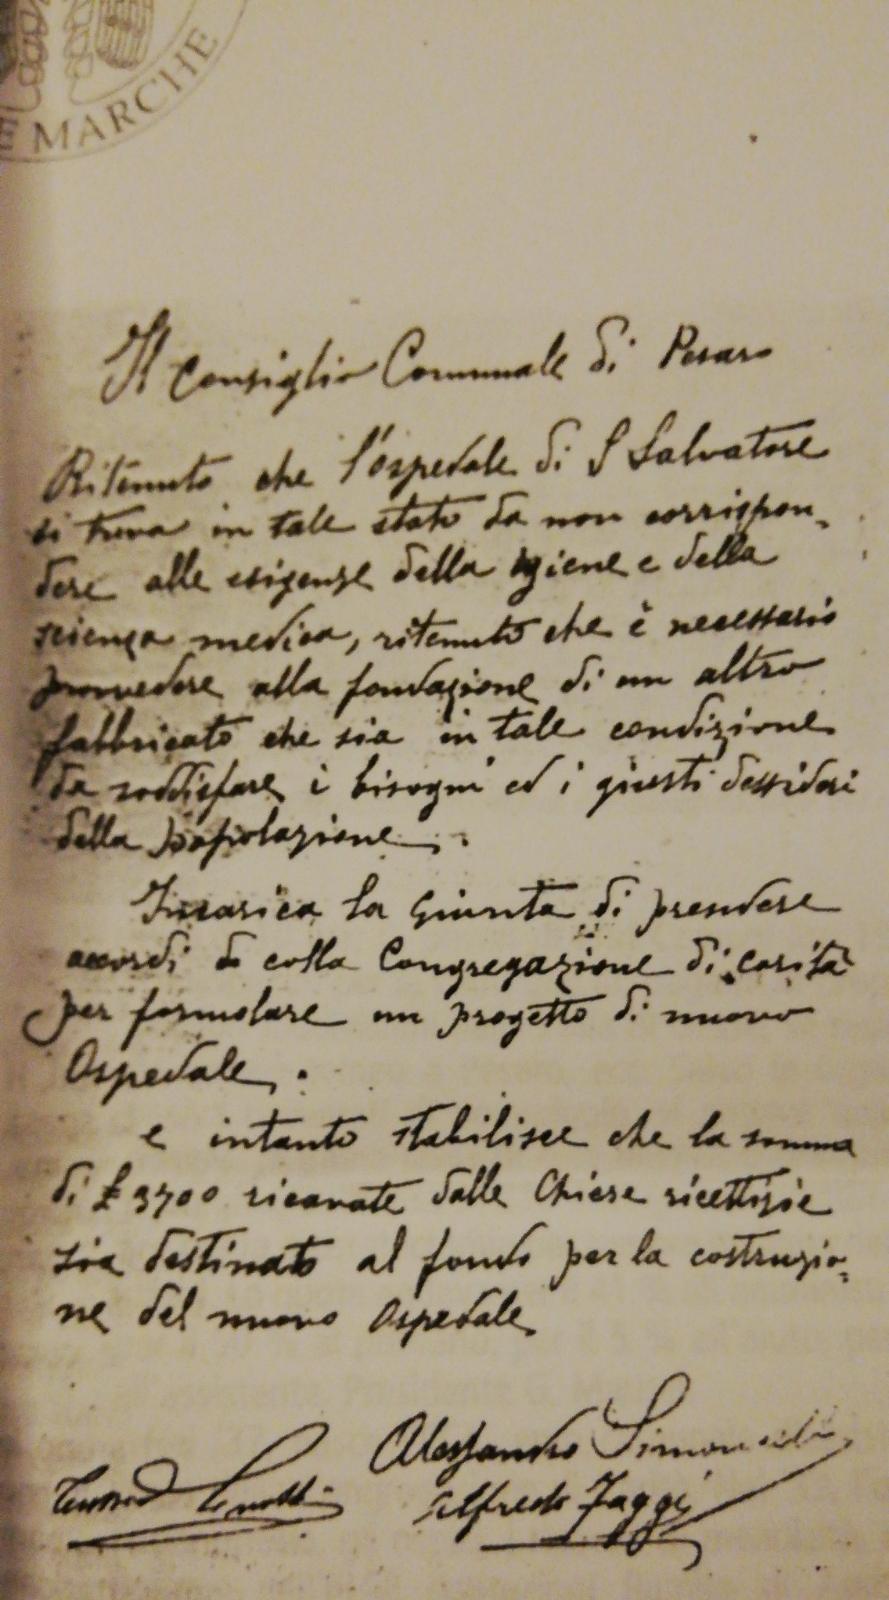 E MARCHE
Il Consiglio Comunale di Pesaro
Ritenuto che l'ospedale di S Salvatore
si trova in tale stato da non corrispon-
dere alle esigenze della igiene e della
scienza medica, ritenuto che è necessario
provvedere alla fondazione di un altro
fabbricato che sia in tale condizione
da soddisfare i bisogni ed i giusti dessideri
della popolazione.
Incarica la Giunta di prendere
accordi colla Congregazione di carità
per formolare un progetto di nuovo
Ospedale.
e intanto stabilisce che la somma
di £ 3700 ricavate dalle Chiese ricettizie
sia destinato al fondo per la costruzio-
ne del nuovo Ospedale
Alessandro
Alfredo Faggi